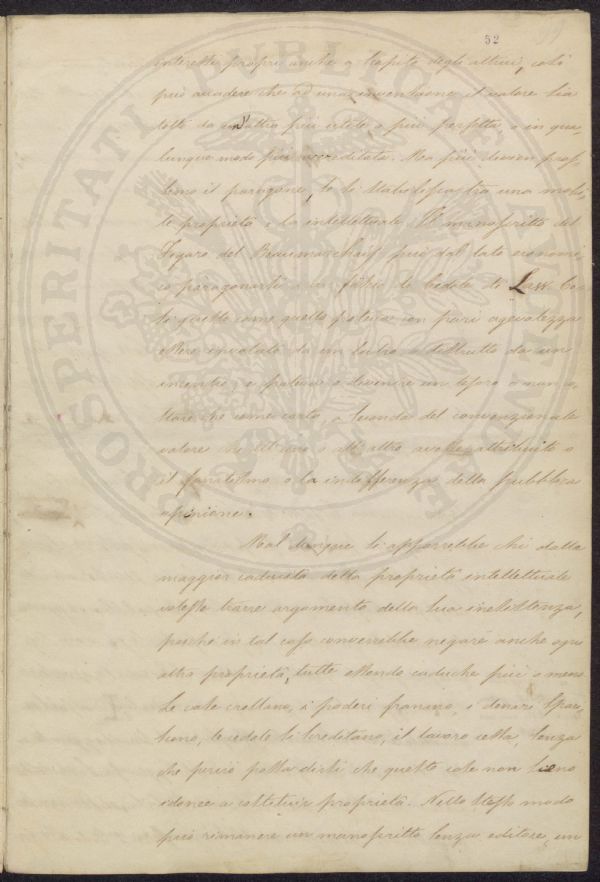 52
interessi proprj anche a scapito degli altrui, così
può accadere che ad una invenzione il valore sia
tolto da un'altra più utile o più perfetta, o in qua
lunque modo più accreditata. Ma più ancora prof
il paragone, se si stabilisca tra una mobi
le proprietà e la intellettuale. Il manoscritto del
Figaro del Beaumarchais può dal lato economi
co paragonarsi a un foglio di cedole di Law. Tan
to questo come quello poteva con pari agevolezza
essere involato da un ladro o distrutto da un
incendio, e poteva o divenire un tesoro o non re
stare che come carta, a seconda del convenzionale
valore che all'uno e all'altro avesse attribuito o
il fanatismo o la indifferenza della pubblica
opinione.
Mal dunque si apporrebbe chi dalla
maggior caducità della proprietà intellettuale
volesse trarre argomento della sua inesistenza,
perchè in tal caso converrebbe negare anche ogni
altra proprietà, tutte essendo caduche più o meno.
Le case crollano, i poderi franano, i denari spari
scono, le cedole si screditano, il lavoro cessa, senza
che perciò possa dirsi che queste cose non sieno
idonee a costituir proprietà. Nello stesso modo
può rimanere un manoscritto senza editore, un
PROSPERITATI PUBLICAE AUGENDAE